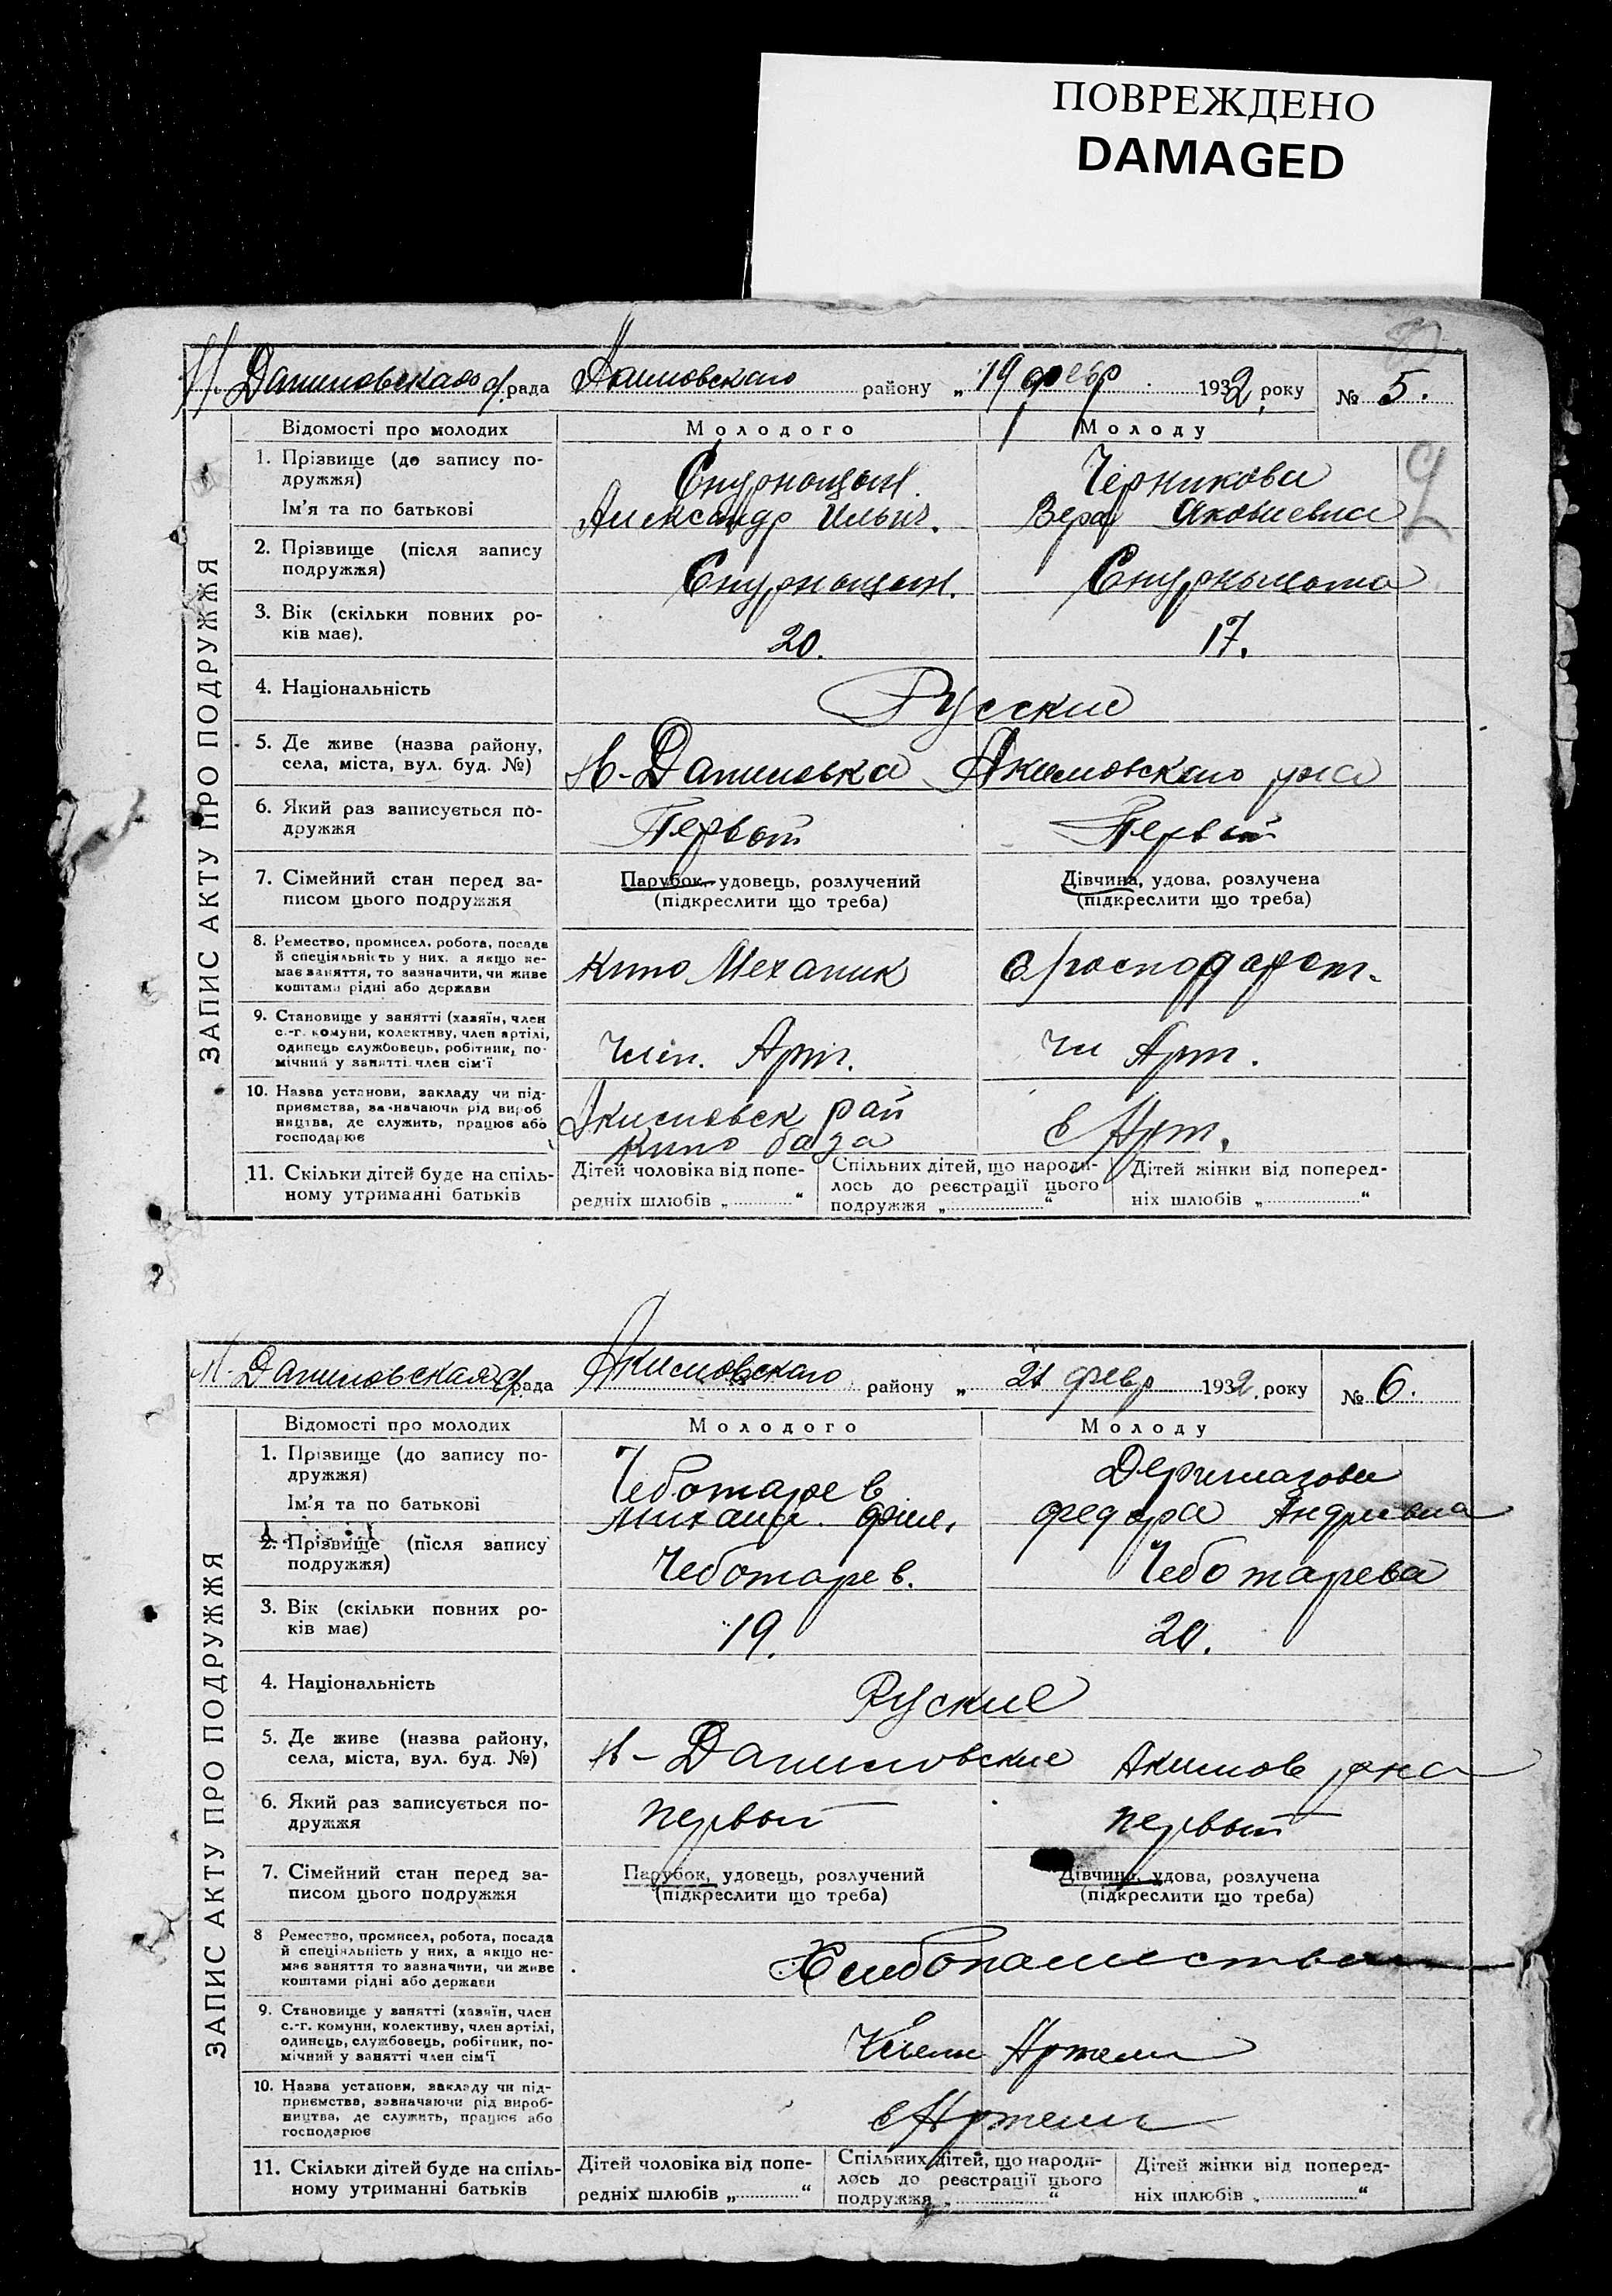 ПОВРЕЖДЕНО
DAMAGED
Н. Даниловская с/рада Акимовского району „19 февр 1932 року № 5.
ЗАПИС АКТУ ПРО ПОДРУЖЖЯ
Відомості про молодих Молодого Молоду
1. Прізвище (до запису подружжя) Черникова
Ім'я та по батькові Александр Ильич. Вера Яковлевна
2. Прізвище (після запису
подружжя)
3. Вік (скільки повних ро-
ків має). 20. 17.
4. Національність Русские
5. Де живе (назва району,
села, міста, вул. буд. №) Н-Даниловка Акимовского рна
6. Який раз записується по-
дружжя Первый Первый
7. Сімейний стан перед за- Парубок, удовець, розлучений Дівчина, удова, розлучена
писом цього подружжя (підкреслити що треба) (підкреслити що треба)
8. Ремество, промисел, робота, посада
й спеціяльність у них, а якщо не-
має заняття, то зазначити, чи живе
коштами рідні або держави Кино Механик
9. Становище у занятті (хазяїн, член
с.-г. комуни, колективу, член артілі,
одинець службовець, робітник, по-
мічний у занятті член сім'ї Член. Арт. Чл Арт.
10. Назва установи, закладу чи під-
приємства, зазначаючи рід вироб
ництва, де служить, працює або
господарює Акимовск рай
Кино база в Арт.
11. Скільки дітей буде на спіль- Дітей чоловіка від попе- Спільних дітей, що народи- Дітей жінки від поперед-
ному утриманні батьків редніх шлюбів „ “ лось до реєстрації цього ніх шлюбів „ “
подружжя „ “
Н-Даниловская с/рада Акимовского району „ 21 февр 1932 року № 6.
ЗАПИС АКТУ ПРО ПОДРУЖЖЯ
Відомості про молодих Молодого Молоду
1. Прізвище (до запису по-
дружжя) Чеботарев Деримазова
Ім'я та по батькові Михаил Фил. Федора Андриевна
2. Прізвище (після запису
подружжя) Чеботарев. Чеботарева
3. Вік (скільки повних ро-
ків має) 19. 20.
4. Національність Руские
5. Де живе (назва району,
села, міста, вул. буд. №) Н-Даниловские Акимов рна
6. Який раз записується по-
дружжя первый первый
7. Сімейний стан перед за- Парубок, удовець, розлучений Дівчина, удова, розлучена
писом цього подружжя (підкреслити що треба) (підкреслити що треба)
8 Ремество, промисел, робота, посада
й спеціяльність у них, а якщо не-
має заняття то зазначити, чи живе
коштами рідні або держави
9. Становище у занятті (хазяїн, член
с.-г. комуни, колективу, член артілі,
одинець, службовець, робітник, по-
мічний у занятті член сім'ї Члены Артели
10. Назва установи, закладу чи під-
приємства, зазначаючи рід вироб-
ництва, де служить, працює або
господарює в Артели
11. Скільки дітей буде на спіль- Дітей чоловіка від попе- Спільних дітей, що народи- Дітей жінки від поперед-
ному утриманні батьків редніх шлюбів „ “ лось до реєстрації цього ніх шлюбів „ “
подружжя „ “